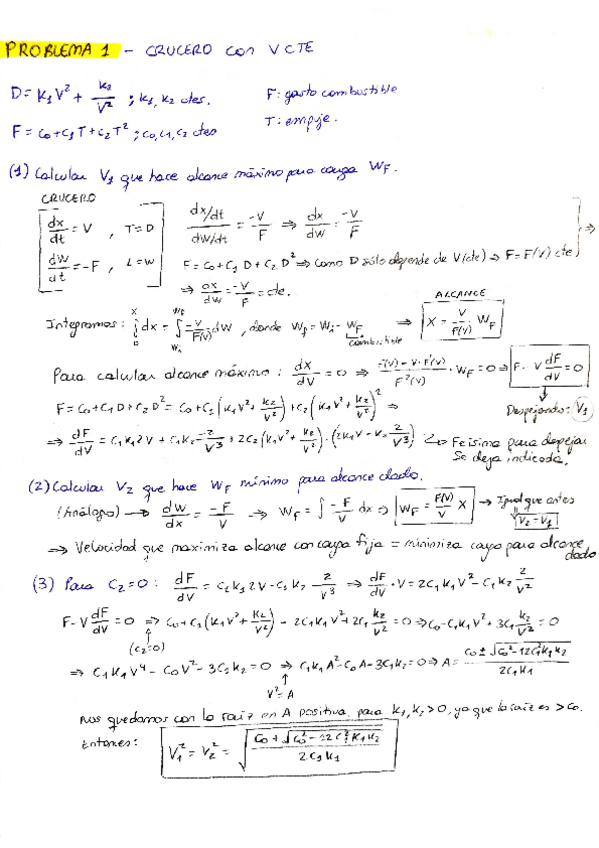 PROBLEMA 1 - CRUCERO con V CTE
D = K₁V² + K₂/V² ; K₁, K₂ ctes.
F: gasto combustible
F = C₀+C₁T+C₂T² ; C₀, C₁, C₂ ctes
T: empuje.
(1) Calcular V₁ que hace alcance máximo para carga W_F.
CRUCERO
dx/dt = V , T=D
dW/dt = -F , L=W
(dx/dt)/(dW/dt) = -V/F ⇒ dx/dW = -V/F
F = C₀+C₁D+C₂D² ⇒ Como D sólo depende de V(cte) ⇒ F = F(V) cte
⇒ dx/dW = -V/F = cte.
ALCANCE
Integramos: ∫₀ˣ dx = ∫_{Wi}^{Wf} -V/F(V) dW, donde Wf = Wi - W_F ⇒ X = V/F(V) W_F
combustible
Para calcular alcance máximo: dX/dV = 0 ⇒ (F(V) - V·F'(V))/F²(V) · W_F = 0 ⇒ F - V dF/dV = 0
F = C₀+C₁D+C₂D² = C₀+C₁(K₁V²+K₂/V²)+C₂(K₁V²+K₂/V²)² ⇒
Despejando: V₁
⇒ dF/dV = C₁K₁2V + C₁K₂ -2/V³ + 2C₂(K₁V²+K₂/V²)·(2K₁V - K₂ 2/V³)
Feísima para depejar
Se deja indicada.
(2) Calcular V₂ que hace W_F mínimo para alcance dado.
(Análogo) → dW/dx = -F/V → W_F = ∫ -F/V dx ⇒ W_F = F(V)/V X → Igual que antes
V₂=V₁
⇒ Velocidad que maximiza alcance con carga fija = minimiza carga para alcance
dado
(3) Para C₂=0: dF/dV = C₁K₁2V - C₁K₂ 2/V³ ⇒ dF/dV · V = 2C₁K₁V² - C₁K₂ 2/V²
F - V dF/dV = 0 ⇒ C₀+C₁(K₁V²+K₂/V²) - 2C₁K₁V²+2C₁ K₂/V² = 0 ⇒ C₀-C₁K₁V²+3C₁ K₂/V² = 0
(C₂=0)
⇒ C₁K₁V⁴ - C₀V² - 3C₁K₂ = 0 ⇒ C₁K₁A² - C₀A - 3C₁K₂ = 0 ⇒ A = (C₀ ± √(C₀²-12C₁²K₁K₂))/(2C₁K₁)
V²=A
Nos quedamos con la raíz en A positiva, para K₁, K₂ > 0, ya que la raíz es > C₀.
Entonces: V₁² = V₂² = √((C₀ + √(C₀² - 12C₁²K₁K₂))/(2C₁K₁))